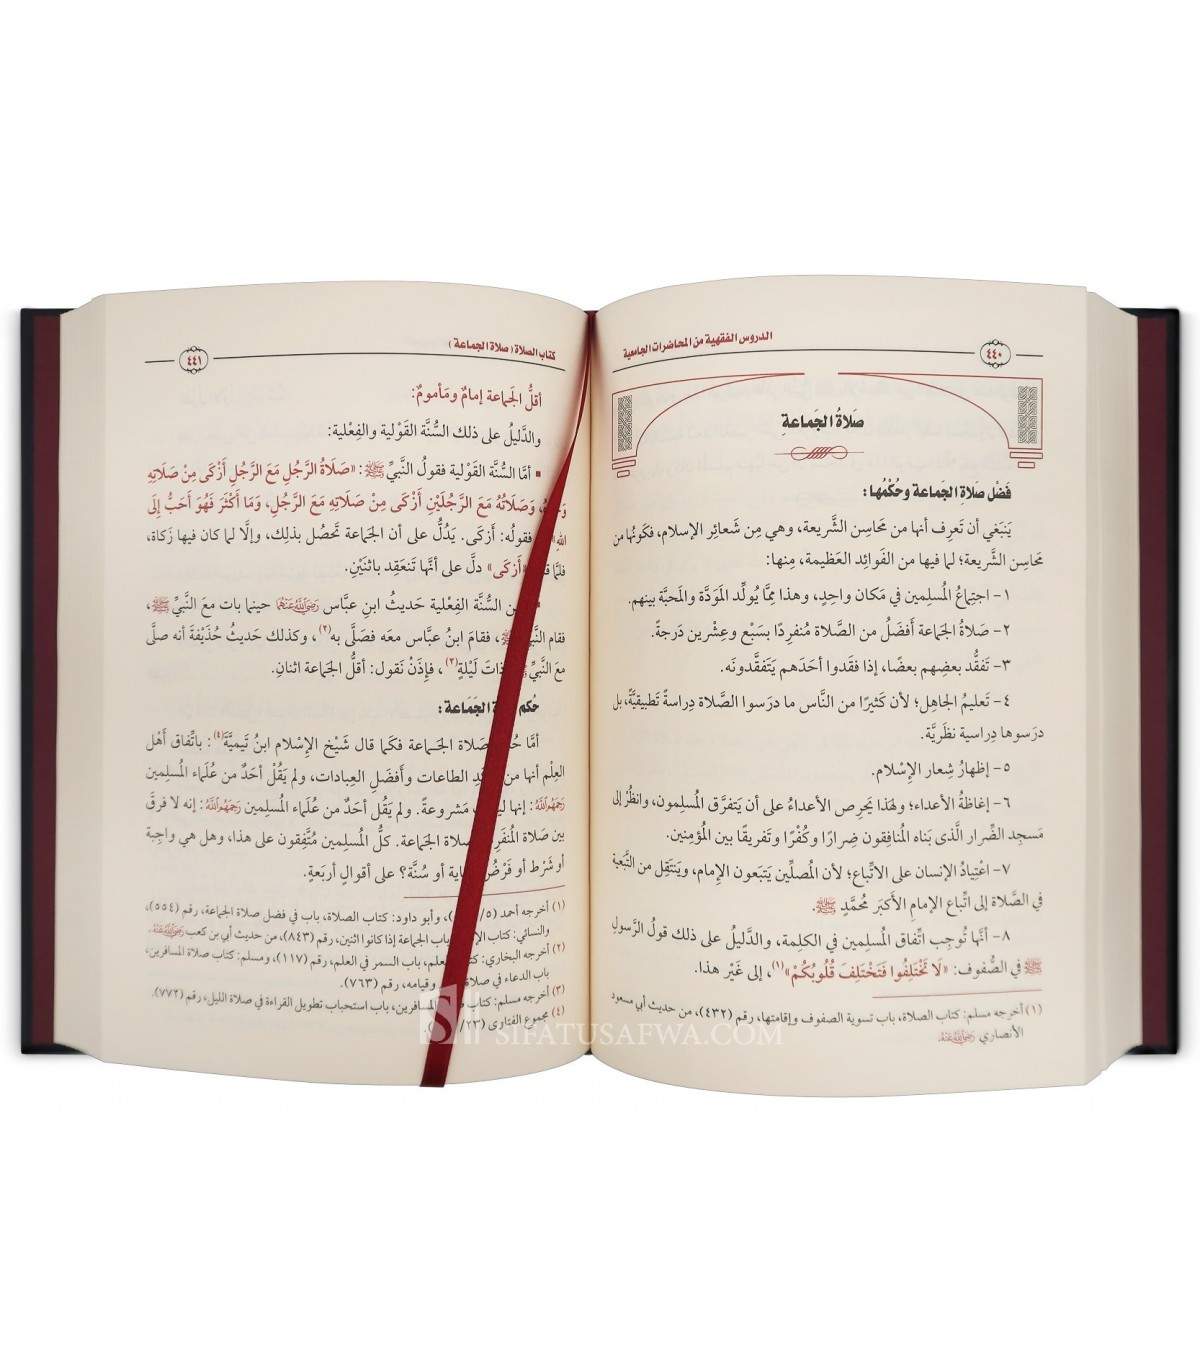 الدروس الفقهية من المحاضرات الجامعية
٤٤٠
صَلاةُ الجَماعةِ
فَضْل صَلاةِ الجَماعة وحُكْمُها:
يَنبَغي أن تَعرِف أنها من مَحاسِن الشَّريعة، وهي مِن شَعائِر الإسلام، فكَونُها من
مَحاسِن الشَّريعة؛ لما فيها من الفَوائِد العَظيمة، مِنها:
١- اجتِماعُ المُسلِمين في مَكان واحِدٍ، وهذا مِمَّا يُولِّد المَوَدَّة والمَحبَّة بينهم.
٢- صَلاةُ الجَماعة أَفضَلُ من الصَّلاة مُنفرِدًا بسَبْع وعِشْرين دَرجةً.
٣- تَفقُّد بعضِهم بعضًا، إذا فقَدوا أحَدَهم يَتَفقَّدونَه.
٤- تَعليمُ الجاهِل؛ لأن كَثيرًا من النَّاس ما دَرَسوا الصَّلاة دِراسةً تَطبيقيَّةً، بل
دَرَسوها دِراسية نظَريَّة.
٥- إظهارُ شِعار الإِسْلام.
٦- إغاظةُ الأعداء؛ ولهَذا يَحرِص الأعداءُ على أن يَتفرَّق المُسلِمون، وانظُرْ إلى
مَسجِد الضِّرار الَّذي بَناه المُنافِقون ضِرارًا وكُفْرًا وتَفريقًا بين المُؤمِنين.
٧- اعْتِيادُ الإنسان على الاتِّباع؛ لأن المُصلِّين يَتبَعون الإمام، ويَنتَقِل من التَّبَعية
في الصَّلاة إلى اتِّباع الإمامِ الأكبَر مُحمَّدٍ ﷺ.
٨- أنَّها تُوجِب اتِّفاق المُسلِمين في الكلِمة، والدَّليلُ على ذلك قولُ الرَّسولِ
ﷺ في الصُّفوف: «لَا تَخْتَلِفُوا فَتَخْتَلِفَ قُلُوبُكُمْ»(١)، إلى غَيْر هذا.
(١) أخرجه مسلم: كتاب الصلاة، باب تسوية الصفوف وإقامتها، رقم (٤٣٢)، من حديث أبي مسعود
الأنصاري رَضِيَ اللَّهُ عَنْهُ.
كتاب الصلاة ( صلاة الجماعة )
٤٤١
أقلُّ الجَماعة إمامٌ ومَأمومٌ:
والدَّليلُ على ذلك السُّنَّة القَوْلية والفِعْلية:
▪ أمَّا السُّنَّة القَوْلية فقولُ النَّبيِّ ﷺ: «صَلَاةُ الرَّجُلِ مَعَ الرَّجُلِ أَزْكَى مِنْ صَلَاتِهِ
وَصَلَاتُهُ مَعَ الرَّجُلَيْنِ أَزْكَى مِنْ صَلَاتِهِ مَعَ الرَّجُلِ، وَمَا أَكْثَرَ فَهُوَ أَحَبُّ إِلَى
فقولُه: أَزكَى. يَدُلُّ على أن الجَماعة تَحصُل بذلِك، وإلَّا لما كان فيها زَكاة،
فلمَّا «أَزْكَى» دلَّ على أنَّها تَنعَقِد باثنَيْنِ.
السُّنَّة الفِعْلية حَديثُ ابنِ عبَّاس رَضِيَ اللَّهُ عَنْهُمَا حينما بات معَ النَّبيِّ ﷺ،
فقام فقامَ ابنُ عبَّاس معَه فصَلَّى به(٢)، وكذلك حَديثُ حُذَيْفةَ أنه صلَّى
معَ النَّبيِّ ذاتَ لَيْلةٍ(٣)، فإِذَنْ نَقول: أقلُّ الجَماعة اثنانِ.
حُكم الجَمَاعة:
أمَّا صَلاة الجَماعة فكَما قال شَيْخ الإِسْلام ابنُ تَيميَّةَ(٤): باتِّفاق أَهْل
العِلْم أنها من الطاعات وأَفضَلِ العِبادات، ولم يَقُلْ أحَدٌ من عُلَماء المُسلِمين
رَحِمَهُمُ اللَّهُ: إنها مَشروعةً. ولم يَقُلْ أحَدٌ من عُلَماء المُسلِمين رَحِمَهُمُ اللَّهُ: إنه لا فرقَ
بين صَلاة صَلاة الجَماعة. كلُّ المُسلِمين مُتَّفِقون على هذا، وهل هي واجِبة
أو شَرْط أو فَرْضُ أو سُنَّة؟ على أقوالٍ أربَعةٍ.
(١) أخرجه أحمد (٥/ وأبو داود: كتاب الصلاة، باب في فضل صلاة الجماعة، رقم (٥٥٤)،
والنسائي: كتاب باب الجماعة إذا كانوا اثنين، رقم (٨٤٣)، من حديث أبي بن كعب رَضِيَ اللَّهُ عَنْهُ.
(٢) أخرجه البخاري: باب السمر في العلم، رقم (١١٧)، ومسلم: كتاب صلاة المسافرين،
باب الدعاء في صلاة وقيامه، رقم (٧٦٣).
(٣) أخرجه مسلم: كتاب المسافرين، باب استحباب تطويل القراءة في صلاة الليل، رقم (٧٧٢).
(٤) مجموع الفتاوى (٢٣/
SIFATUSAFWA.COM